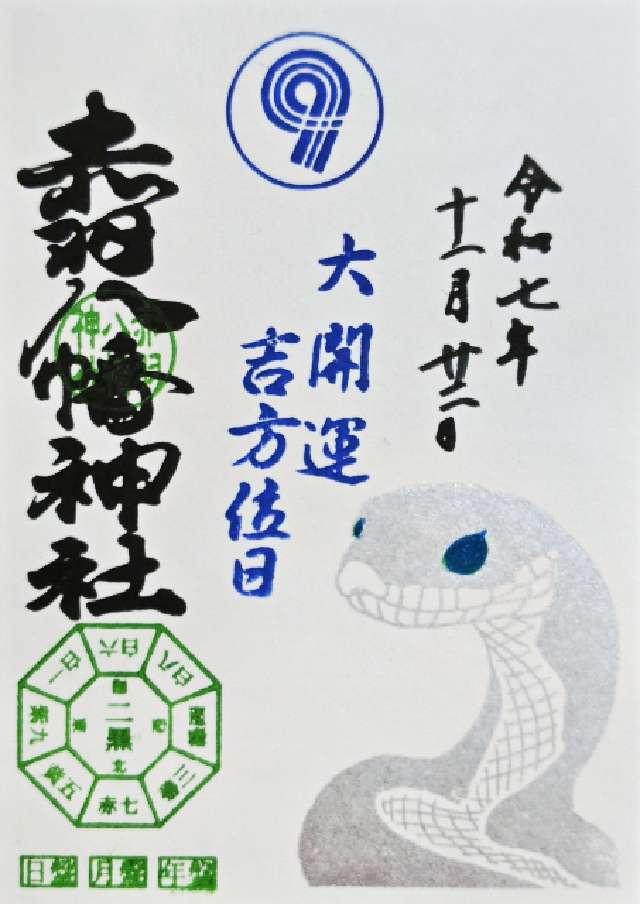 令和七年
十一月廿一日
大開運
吉方位日
赤羽八幡神社
赤羽八幡神社
六白
八白
四緑
三碧
七赤
五黄
九紫
一白
南
東
二黒
西
北
年盤
月盤
日盤